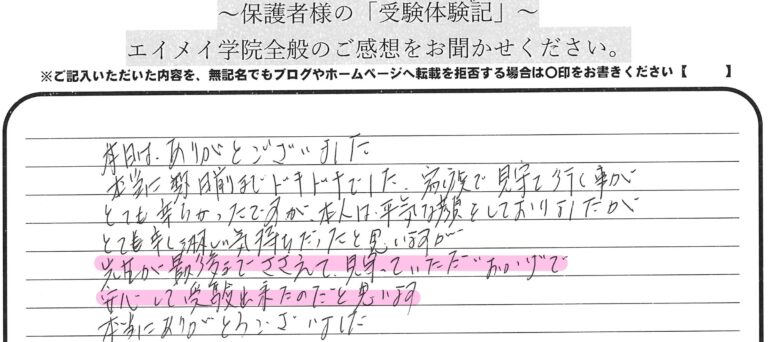 ～保護者様の「受験体験記」～
エイメイ学院全般のご感想をお聞かせください。
※ご記入いただいた内容を、無記名でもブログやホームページへ転載を拒否する場合は〇印をお書きください【　　】
本日は、ありがとうございました
本当に 前日前までドキドキでした、家族で見守って行く事が
とても辛らかったですが、本人は、平気な顔をしておりましたが
とても辛く淋しい気持ちだったと思いますが
先生が最後までささえて、見守っていただいおかげで
安心して受験出来たのだと思います
本当にありがとうございました